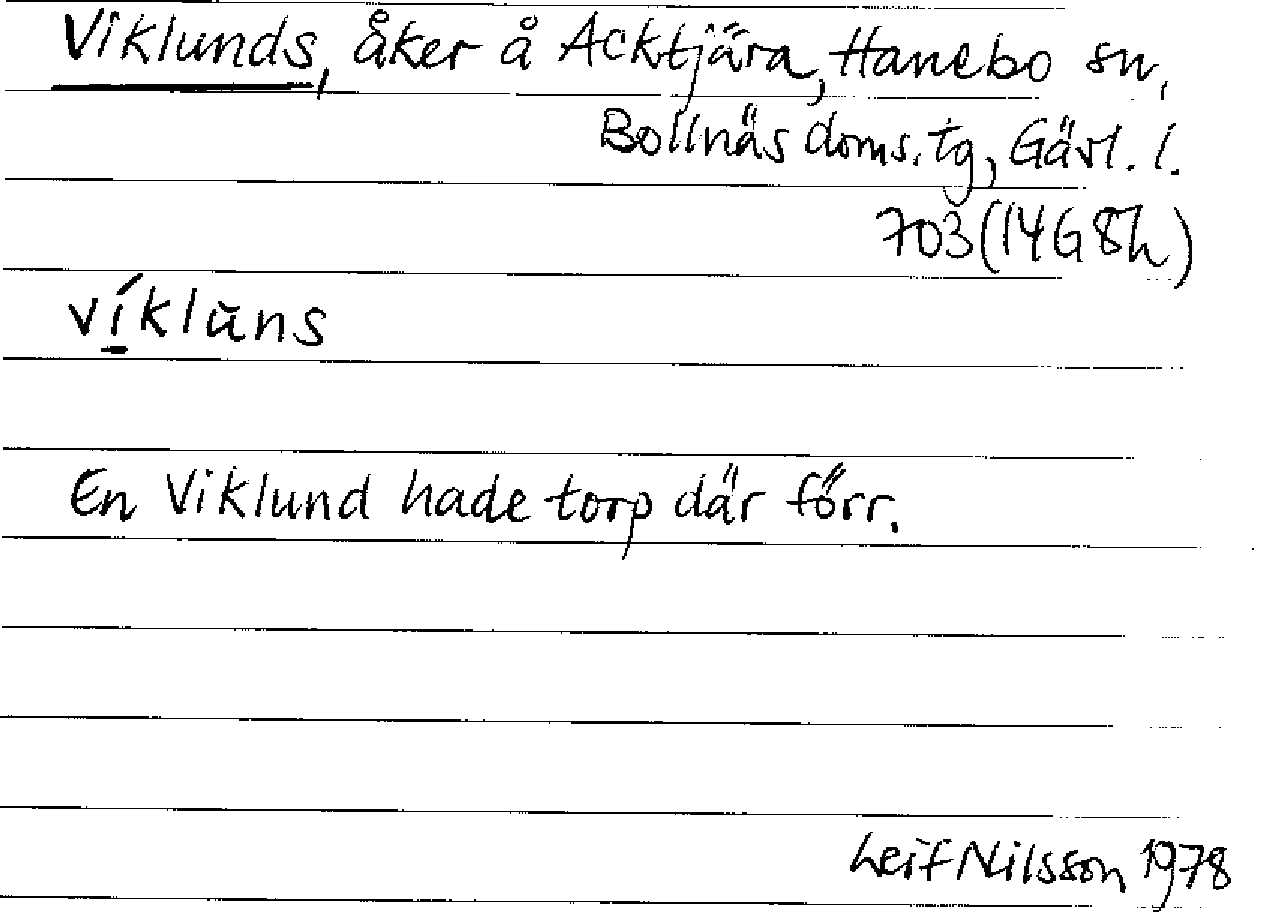 Viklunds, åker å Acktjära, Hanebo sn,
Bollnäs doms.tg, Gävl. l.
703 (14G 8h)
víklŭns
En Viklund hade torp där förr.
Leif Nilsson 1978